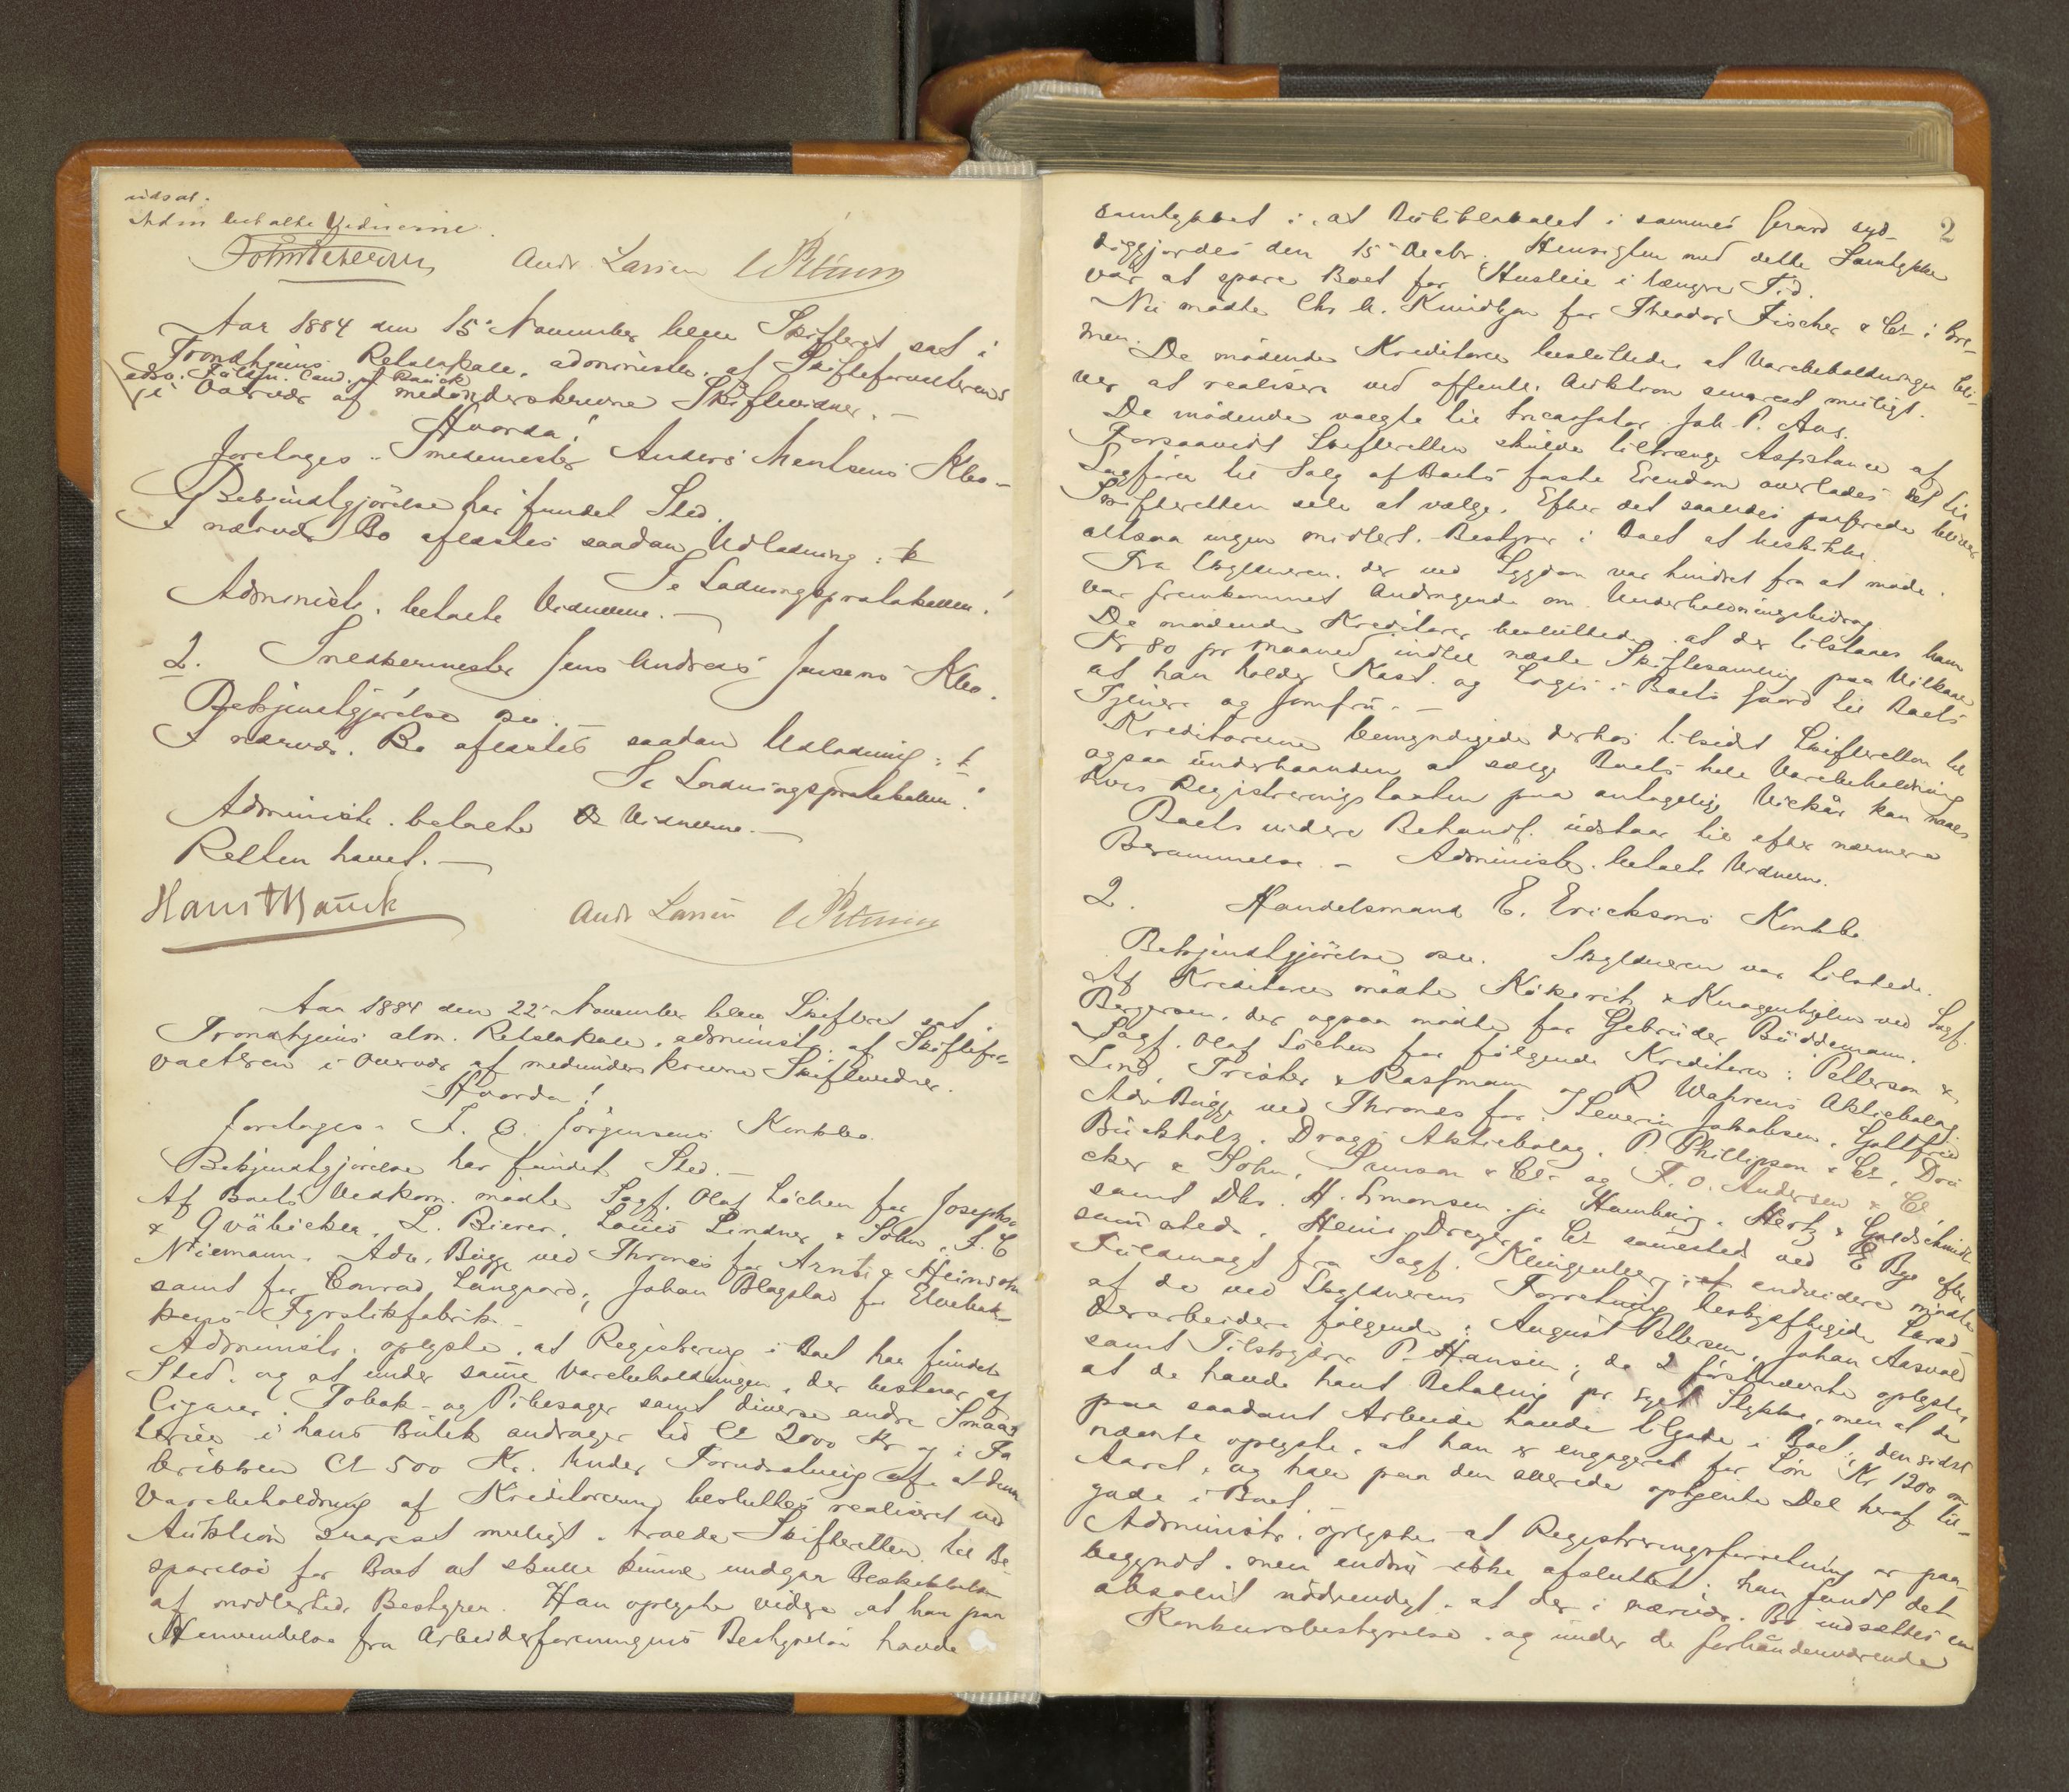 udsat.
Adm betalte Vidnerne.
Andr. Larsen
Aar 1884 den 15de November blev Skifteret sat i
Trondhjems Retslokale, administr. af Skifteforvalterens
edsv. Fuldm. Cand. jf Hanck
i Overvær af medunderskrevne Skiftevidner. —
Hvorda!
foretoges. Smedemester Anders Mentsens Kbo—
Bekjendtgjörelse har fundet Sted.
I nærvær. Bo aflæstes saadan Udlodning: t
Se Lodningsprotokollen!
Administr. betalte Vidnerne. —
2. Snedkermester Jens Andreas Jensens Kbo.
Bekjendtgjörelse osv. —
I nærvær. Bo aflæstes saadan Udlodning: t
Se Lodningsprotokollen!
Administr. betalte Vidnerne. —
Retten hævet. —
Hans Hanck Andr Larsen
Aar 1884 den 22de November blev Skifteret sat i
Trondhjems alm. Retslokale, administr. af Skiftefor-
valteren i Overvær af medunderskrevne Skiftevidner.
Hvorda!
foretoges. F. C. Jörgensens Konkbo.
Bekjendtgjörelse har fundet Sted. —
Af Boets Vedkom. mödte Sagf. Olaf Löchen for Josephs
& Qväbicker, L. Bierer, Louis Lindner & Sohn, F. C
Niemann. Adv. Bugge ved Thrones for Arntz & Heinsohn
samt for Conrad Langaard; Johan Blagstad for Elvebak-
kens Fyrstikfabrik. —
Administr. oplyste, at Registrering i Boet har fundet
Sted, og at under samme Varebeholdningen, der bestaar af
Cigarer, Tobak- og Pibesager samt diverse andre Smaa
i hans Butik andrager til Ct 2000 Kr og i Fa
brikken Ct 500 Kr. Under Forudsætning af at denne
Varebeholdning af Kreditorerne besluttes realiseret ved
Auktion snarest muligt, troede Skifteretten til Be-
sparelse for Boet at skulle kunne undgaa Beskikkelse
af midlertid. Bestyrer. Han oplyste videre at han paa
Henvendelse fra Arbeiderforeningens Bestyrelse havde
2
samtykket i, at Butiklokalet i sammes Gaard ryd-
diggjordes den 15de Decbr. Hensigten med dette Samtykke
var at spare Boet for Husleie i længre Tid.
Nu mödte Chr. A. Knudtzon for Theodor Fischer & Co i Bre-
men.
De mödende Kreditorer besluttede, at Varebeholdningen bli-
ver at realisere ved offentl. Auktion snarest muligt.
De mödende valgte til Incassator Joh P. Aas.
Forsaavidt Skifteretten skulde tiltrænge Assistance af
Sagförer til Salg af Boets faste Eiendom overlades det til
Skifteretten selv at vælge. Efter det saaledes passerede bliver
altsaa ingen midlert. Bestyrer i Boet at beskikke.
Fra Skyldneren, der ved Sygdom var hindret fra at möde,
var fremkommet Andragende om Underholdningsbidrag.
De mödende Kreditorer besluttede, at der tilstaaes ham
Kr 80 pr Maaned indtil næste Skiftesamling paa Vilkaar
at han holder Kost og Logis i Boets Gaard til Boets
Tjener og Jomfru. —
Kreditorerne bemyndigede derhos tilsidst Skifteretten til
ogsaa underhaanden at sælge Boets hele Varebeholdning
hvis Registreringstaxten paa antagelige Vilkår kan naaes
Boets videre Behandl. udstaar til efter nærmere
Berammelse. — Administr. betalte Vidnerne.
2. Handelsmand E. Ericksons Konkbo
Bekjendtgjörelse osv. Skyldneren var tilstede.
Af Kreditorer mödte Kökeritz & Knaggenhjelm ved Sagf.
Bergersen, der ogsaa mödte for Gebrüder Büddemann.
Sagf. Olaf Löchen for fölgende Kreditorer: Pettersson &
Lind, Trister & Rossmann og R Wahrens Aktiebolag.
Adv Bugge ved Thrones for Severin Jakobsen, Gottfried
Buckholz, Drags Aktiebolag, P. Phillipson & Co, Drü
cker & Sohn, Simson & Co og F. O. Andersen & Co,
samt Dhr. H. Simonsen jr Hamburg, Hertz & Goldschmidt
sammesteds, Heinr Dreyer & Co sammested ved E Bye efter
Fuldmagt fra Sagf. Klingenberg; endvidere mödte
af de ved Skyldnerens Forretning beskjæftigede
derarbeidere fölgende: August Pettersen, Johan Aasvold
samt Tilskjærer P. Hansen; de 2 förstnævnte oplyste,
at de havde havt Betaling pr syet Stykke, men at de
paa saadant Arbeide havde tilgode i Boet; den sidst
nævnte oplyste, at han er engageret for Lön Kr 1200 om
Aaret, og har paa den allerede optjente Del heraf til-
gode i Boet. —
Administr. oplyste at Registreringsforretning er paa-
begyndt, men endnu ikke afsluttet; han fandt det
absolut nödvendigt, at der i nærvær. Bo indsattes en
Konkursbestyrelse, og under de forhaandenværende